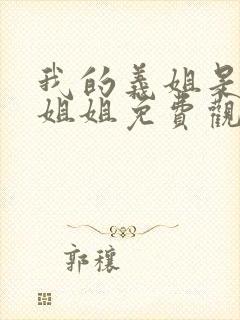 我的義姐是
姐姐免費觀
郭穰